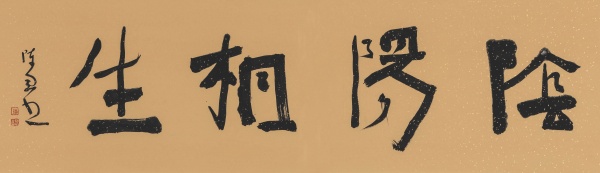 陰陽相生